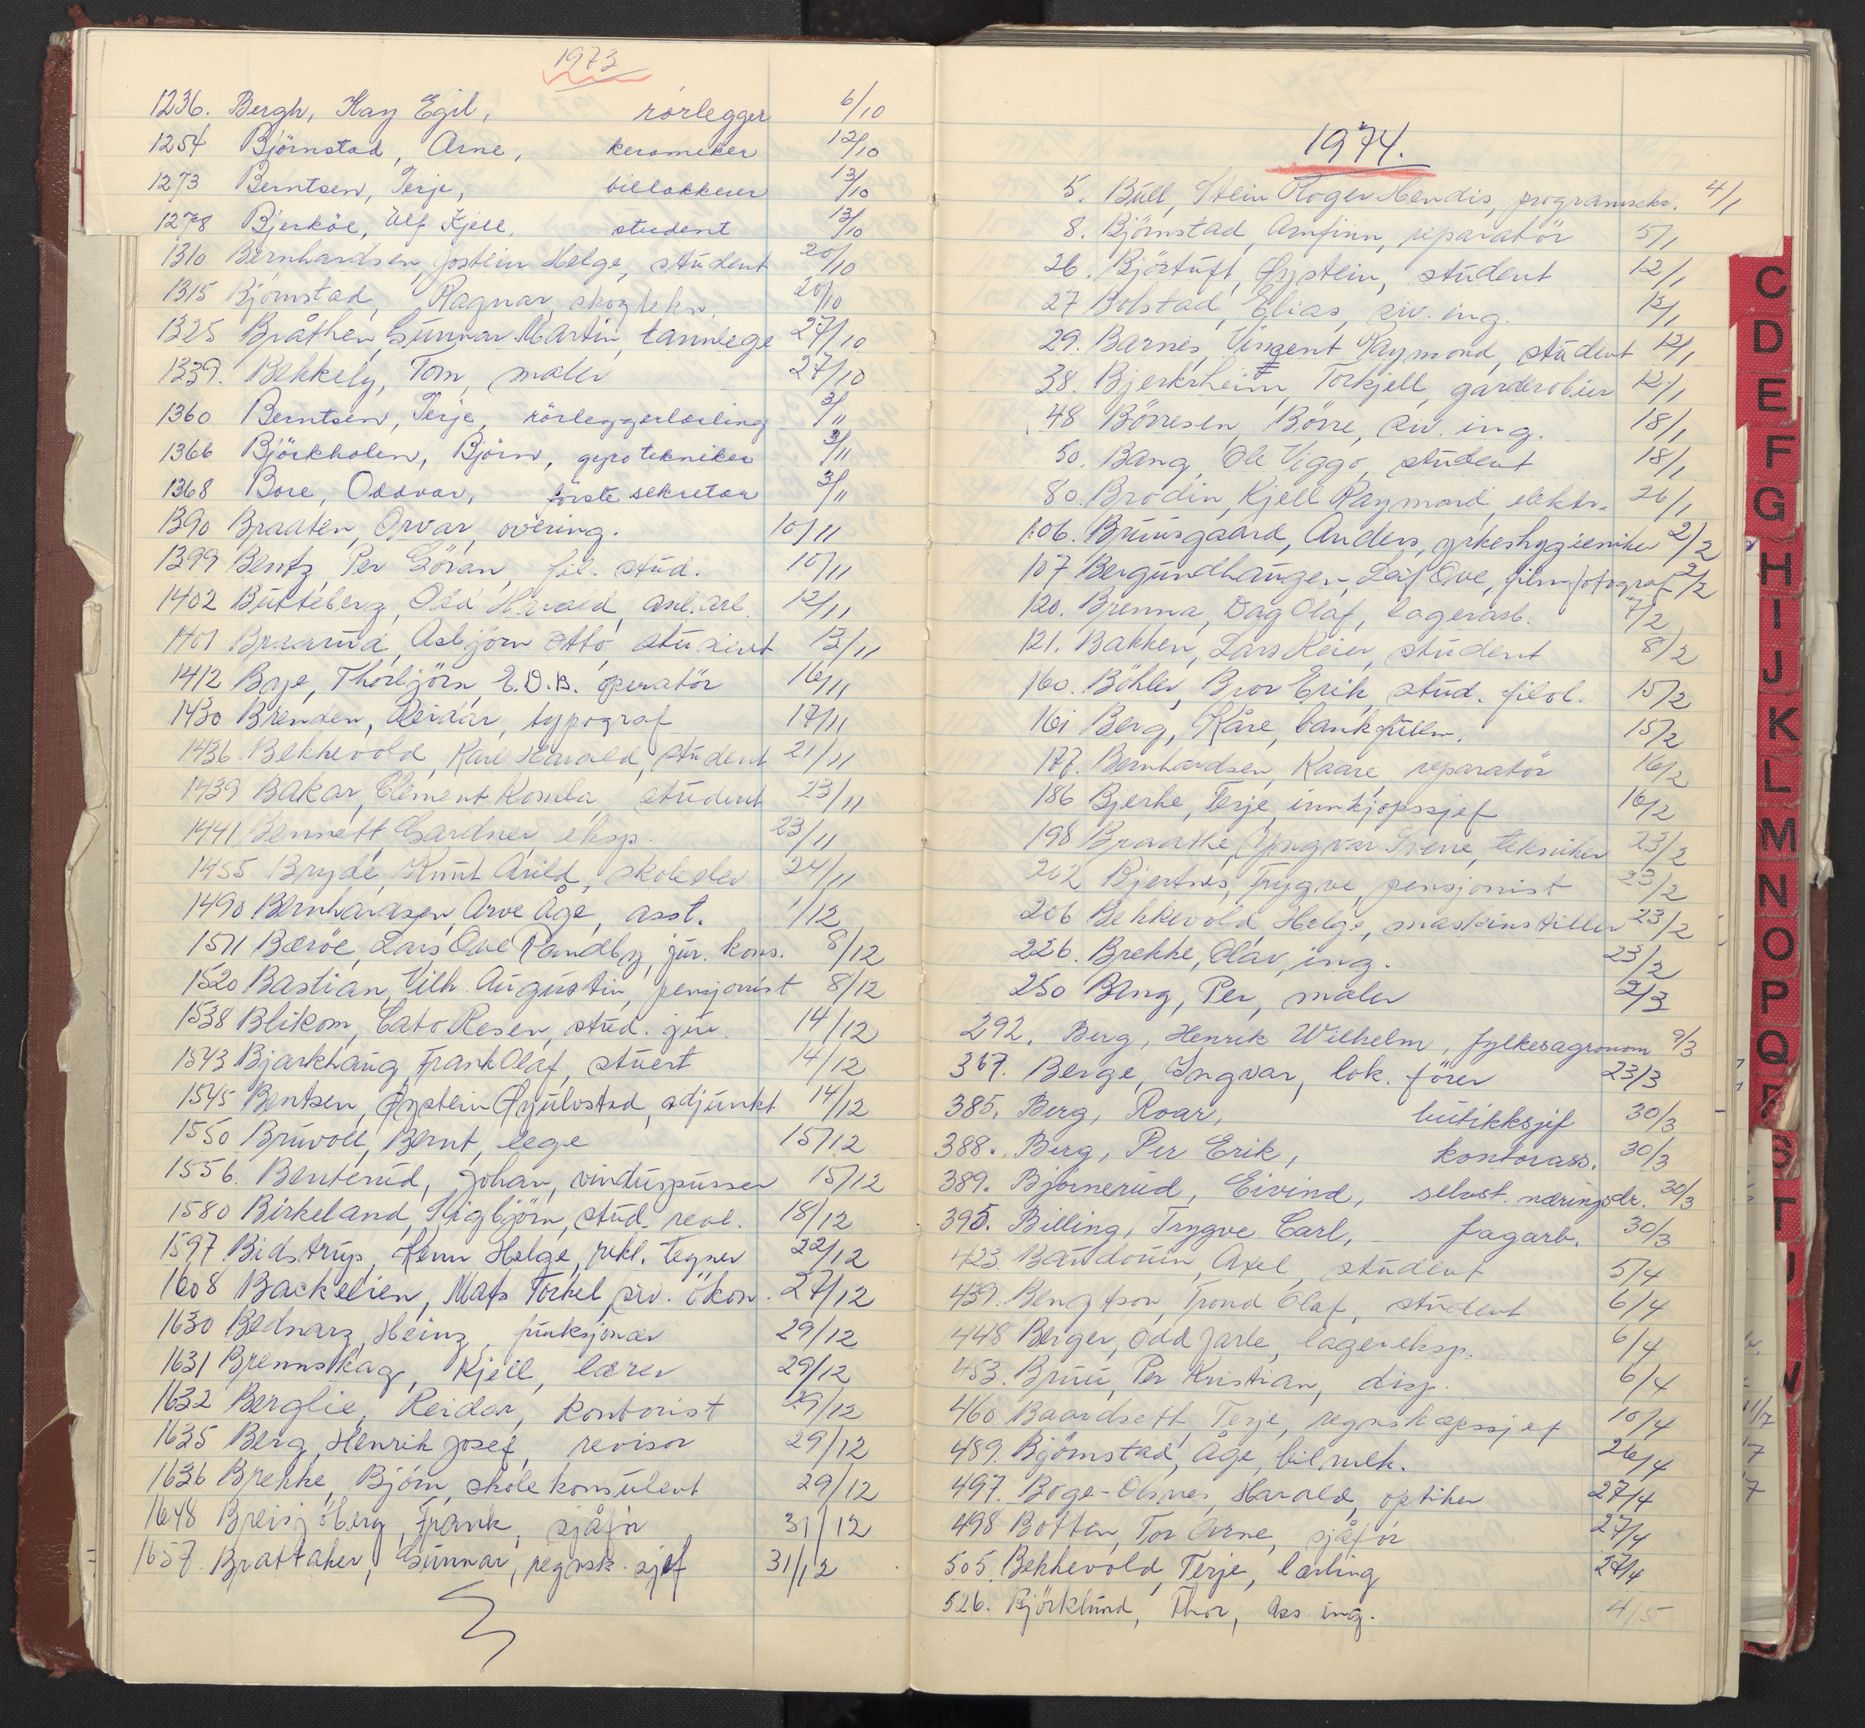 1973
1236. Bergh, Kay Egil, rørlegger 6/10
1254 Björnstad, Arne, keramiker 12/10
1273 Berntsen, Terje, billakkerer 13/10
1278 Bjerköe, Ulf Kjell, student 13/10
1310 Bernhardsen, Jostein Helge, student 20/10
1315 Björnstad, Ragnar, skogtekn. 20/10
1325 Bråthen, Gunnar Martin, tannlege 27/10
1339. Bekkely, Tom, maler 27/10
1360 Berntsen, Terje, rörleggerlærling 3/11
1366 Björkholen, Björn, gyrotekniker 3/11
1368 Bore, Oddvar, förstesekretær 3/11
1390 Braaten, Orvar, overing. 10/11
1399 Bentz, Per Göran, fil. stud. 10/11
1402 Butteberg, Odd Harald, anl.arb. 12/11
1401 Braarud, Asbjörn Otto, student 13/11
1412 Bøe, Thorbjörn, E.D.B. operatör 16/11
1430 Brenden, Reidar, typograf 17/11
1436. Bekkevold, Kåre Harald, student 21/11
1439 Bakar, Clement Konda, student 23/11
1441 Bennett, Gardner, eksp. 23/11
1455 Bryde, Knut Arild, skoleelev 24/11
1490 Bernhardsen, Arve Åge, asst. 1/12
1511 Bæröe, Lars Ove Randby, jur. kons. 8/12
1520 Bastian, Vilh. Augustin, pensjonist 8/12
1538 Blikom, Cato Resen, stud. jur. 14/12
1543 Bjarkhaug, Frank Olaf, stuert 14/12
1545 Bentsen, Øystein Gjulvstad, adjunkt 14/12
1550 Bruvoll, Bernt, lege 15/12
1556. Benterud, Johan, vinduspusser 15/12
1580 Birkeland, Sigbjörn, stud. real. 18/12
1597 Bidstrup, Kenn Helge, rekl. tegner 22/12
1608 Backelien, Mats Torkel, siv. ökon. 27/12
1630 Bednarz, Heinz, funksjonær 29/12
1631 Brennskag, Kjell, lærer 29/12
1632 Berglie, Reidar, kontorist 29/12
1635 Berg, Henrik Josef, revisor 29/12
1636 Brekke, Björn, skolekonsulent 29/12
1648 Breisjöberg, Frank, sjåför 31/12
1657. Brattaker, Gunnar, regnsk. sjef 31/12
1974.
5. Bull, Stein Roger Mendis, programsekr. 4/1
8. Björnstad, Arnfinn, reparatör 5/1
26. Björtuft, Øystein, student 12/1
27 Bolstad, Elias, siv. ing. 12/1
29. Barnes, Vincent Raymond, student 12/1
38. Bjerkrheim, Torkjell, garderobier 12/1
48 Börresen, Börre, siv. ing. 18/1
50. Bang, Ole Viggo, student 18/1
80. Brodin, Kjell Raymond, elektr. 26/1
106. Bruusgaard, Anders, yrkeshygieniker 2/2
107 Bergundhaugen, Leif Ove, filmfotograf 2/2
120. Brenna, Dag Olaf, lagerarb. 7/2
121. Bakken, Lars Reier, student 8/2
160. Böhler, Bror Erik, stud. filol. 15/2
161 Berg, Kåre, bankfullm. 15/2
177. Bernhardsen, Kaare, reparatör 16/2
186 Bjerke, Terje, innkjøpssjef 16/2
198 Braathe, Yngvar Sverre, tekniker 23/2
202 Bjertnes, Trygve, pensjonist 23/2
206 Bekkevold, Helge, maskinstiller 23/2
226. Brekke, Olav, ing. 23/2
250 Bang, Per, maler 2/3
292. Berg, Henrik Wilhelm, fylkesagronom 9/3
367. Berge, Ingvar, lok. förer 23/3
385. Berg, Roar, butikksjef 30/3
388. Berg, Per Erik, kontorass. 30/3
389. Björnerud, Eivind, selvst. næringsdr. 30/3
395. Billing, Trygve Carl, fagarb. 30/3
423. Baudouin, Axel, student 5/4
439. Bengtson, Trond Olaf, student 6/4
448 Berger, Odd Jarle, lagereksp. 6/4
453. Bruu, Per Kristian, disp. 6/4
460 Baardseth, Terje, regnskapssjef 10/4
489. Björnstad, Åge, bilmek. 26/4
497. Boge-Olsnes, Harald, optiker 27/4
498 Botten, Tor Arne, sjåför 27/4
505. Bekkevold, Terje, lærling 27/4
526. Björklund, Thor, Ass. ing. 4/5
C
D
E
F
G
H
I
J
K
L
M
N
O
P
Q
R
S
T
U
V